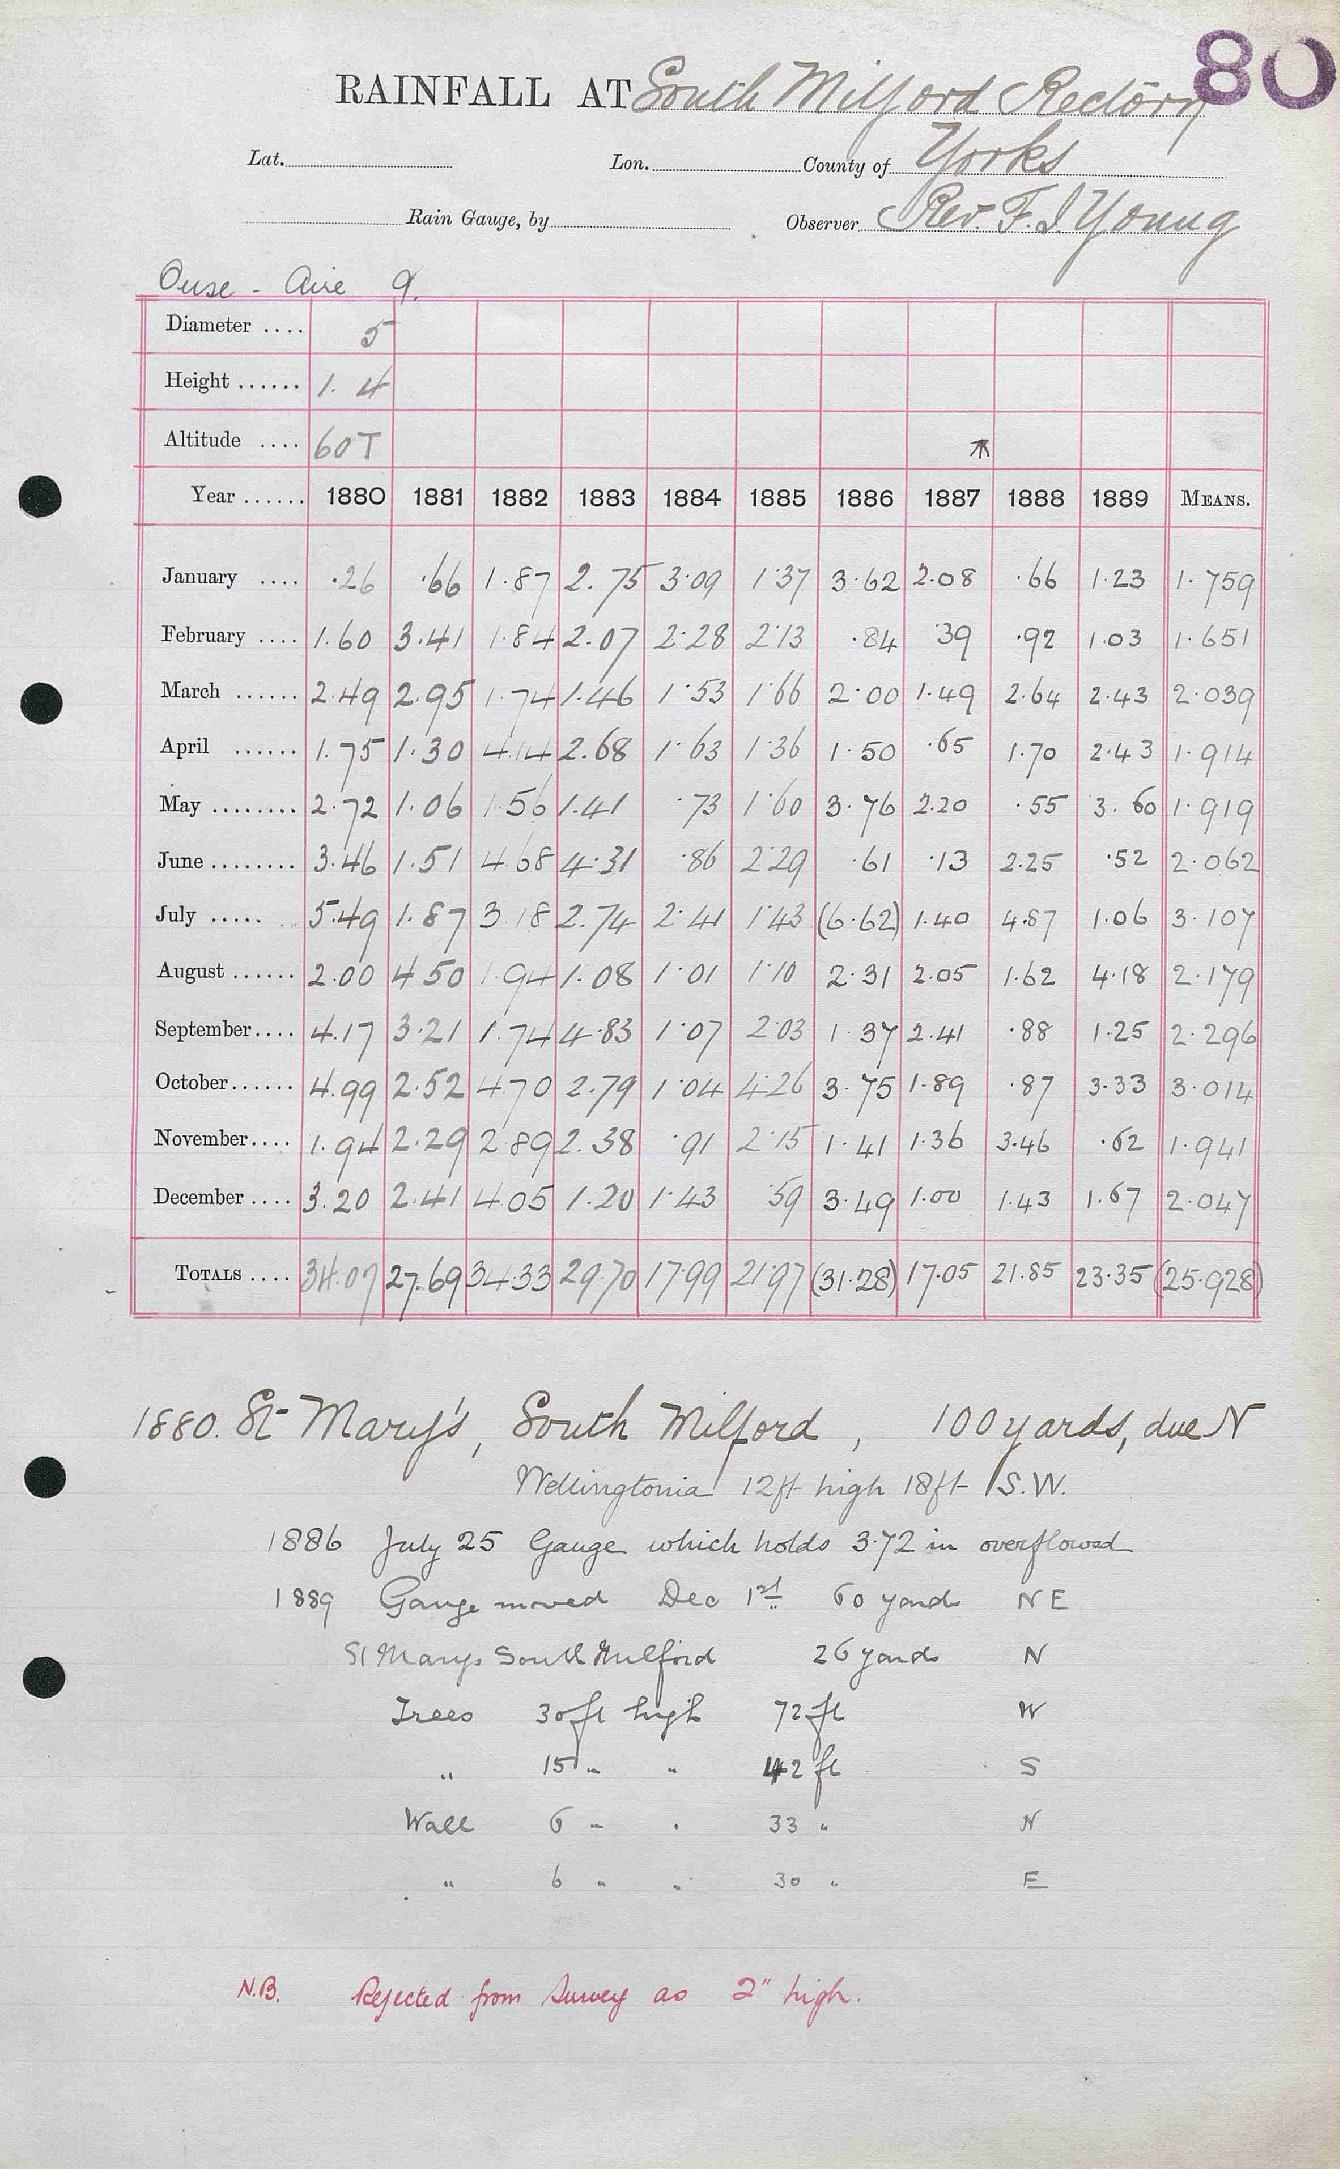 80
RAINFALL AT South Milford Rectory
Lat. Lon. County of Yorks
Rain Gauge, by Observer Rev. F. J Young
Ouse - Aire 9.
Diameter .... 5
Height ...... 1. 4
Altitude .... 60 T
Year ...... 1880 1881 1882 1883 1884 1885 1886 1887 1888 1889 MEANS.
January .... .26 .66 1.87 2.75 3.09 1.37 3.62 2.08 .66 1.23 1.759
February .... 1.60 3.41 1.84 2.07 2.28 2.13 .84 .39 .92 1.03 1.651
March ...... 2.49 2.95 1.74 1.46 1.53 1.66 2.00 1.49 2.64 2.43 2.039
April ...... 1.75 1.30 4.14 2.68 1.63 1.36 1.50 .65 1.70 2.43 1.914
May ........ 2.72 1.06 1.56 1.41 .73 1.60 3.76 2.20 .55 3.60 1.919
June ........ 3.46 1.51 4.68 4.31 .86 2.29 .61 .13 2.25 .52 2.062
July ..... 5.49 1.87 3.18 2.74 2.41 1.43 (6.62) 1.40 4.87 1.06 3.107
August ...... 2.00 4.50 1.94 1.08 1.01 1.10 2.31 2.05 1.62 4.18 2.179
September.... 4.17 3.21 1.74 4.83 1.07 2.03 1.37 2.41 .88 1.25 2.296
October...... 4.99 2.52 4.70 2.79 1.04 4.26 3.75 1.89 .87 3.33 3.014
November.... 1.94 2.29 2.89 2.38 .91 2.15 1.41 1.36 3.46 .62 1.941
December .... 3.20 2.41 4.05 1.20 1.43 .59 3.49 1.00 1.43 1.67 2.047
TOTALS .... 34.07 27.69 34.33 29.70 17.99 21.97 (31.28) 17.05 21.85 23.35 (25.928)
1880. St Mary's, South Milford, 100 yards, due N
Wellingtonia 12ft high 18ft S.W.
1886 July 25 Gauge which holds 3.72 in overflowed
1889 Gauge moved Dec 1st 60 yards NE
St Marys South Milford 26 yards N
Trees 30ft high 72 ft W
" 15 " " 42 ft S
Wall 6 " " 33 " N
" 6 " " 30 " E
N.B. Rejected from Survey as 2" high.